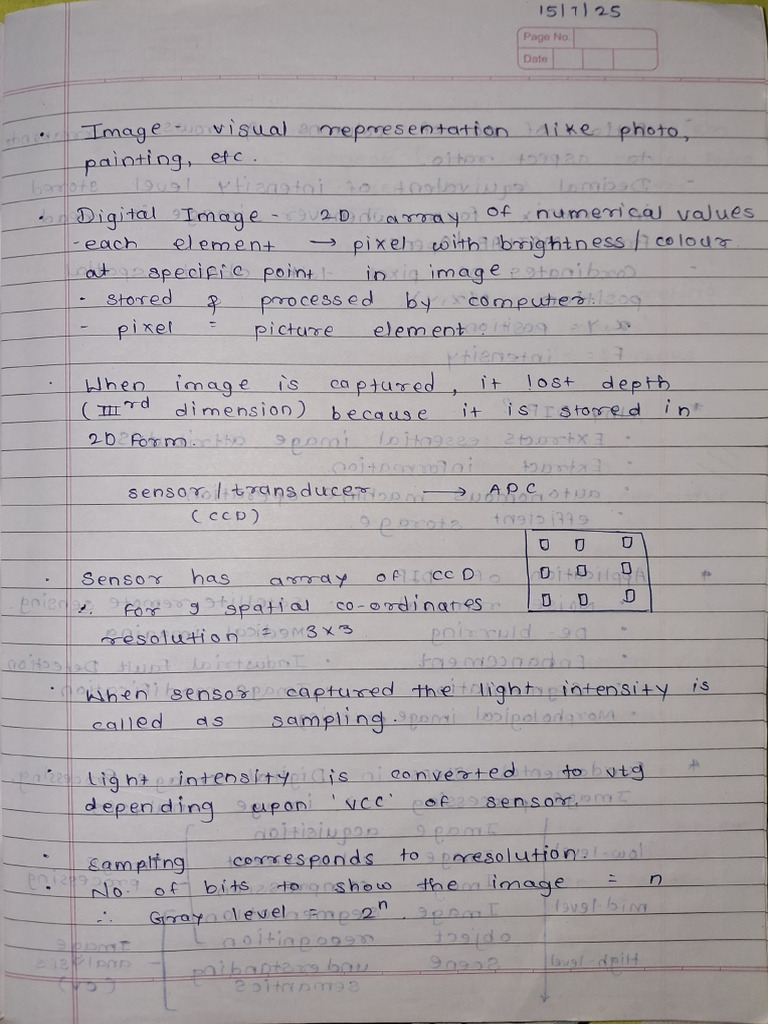 15/7/25
Page No.
Date
• Image - visual representation like photo,
painting, etc.
• Digital Image - 2D array of numerical values
- each element → pixel with brightness / colour
at specific point in image
- stored & processed by computer.
- pixel = picture element.
• When image is captured, it lost depth
(IIIrd dimension) because it is stored in
2D form.
sensor / transducer → ADC
(CCD)
• Sensor has array of CCD
∴ for 9 spatial co-ordinates
resolution = 3x3
• When sensor captured the light intensity is
called as sampling.
• Light intensity is converted to vtg
depending upon 'vcc' of sensor.
• Sampling corresponds to resolution.
• No. of bits to show the image = n
∴ Gray level = 2^n